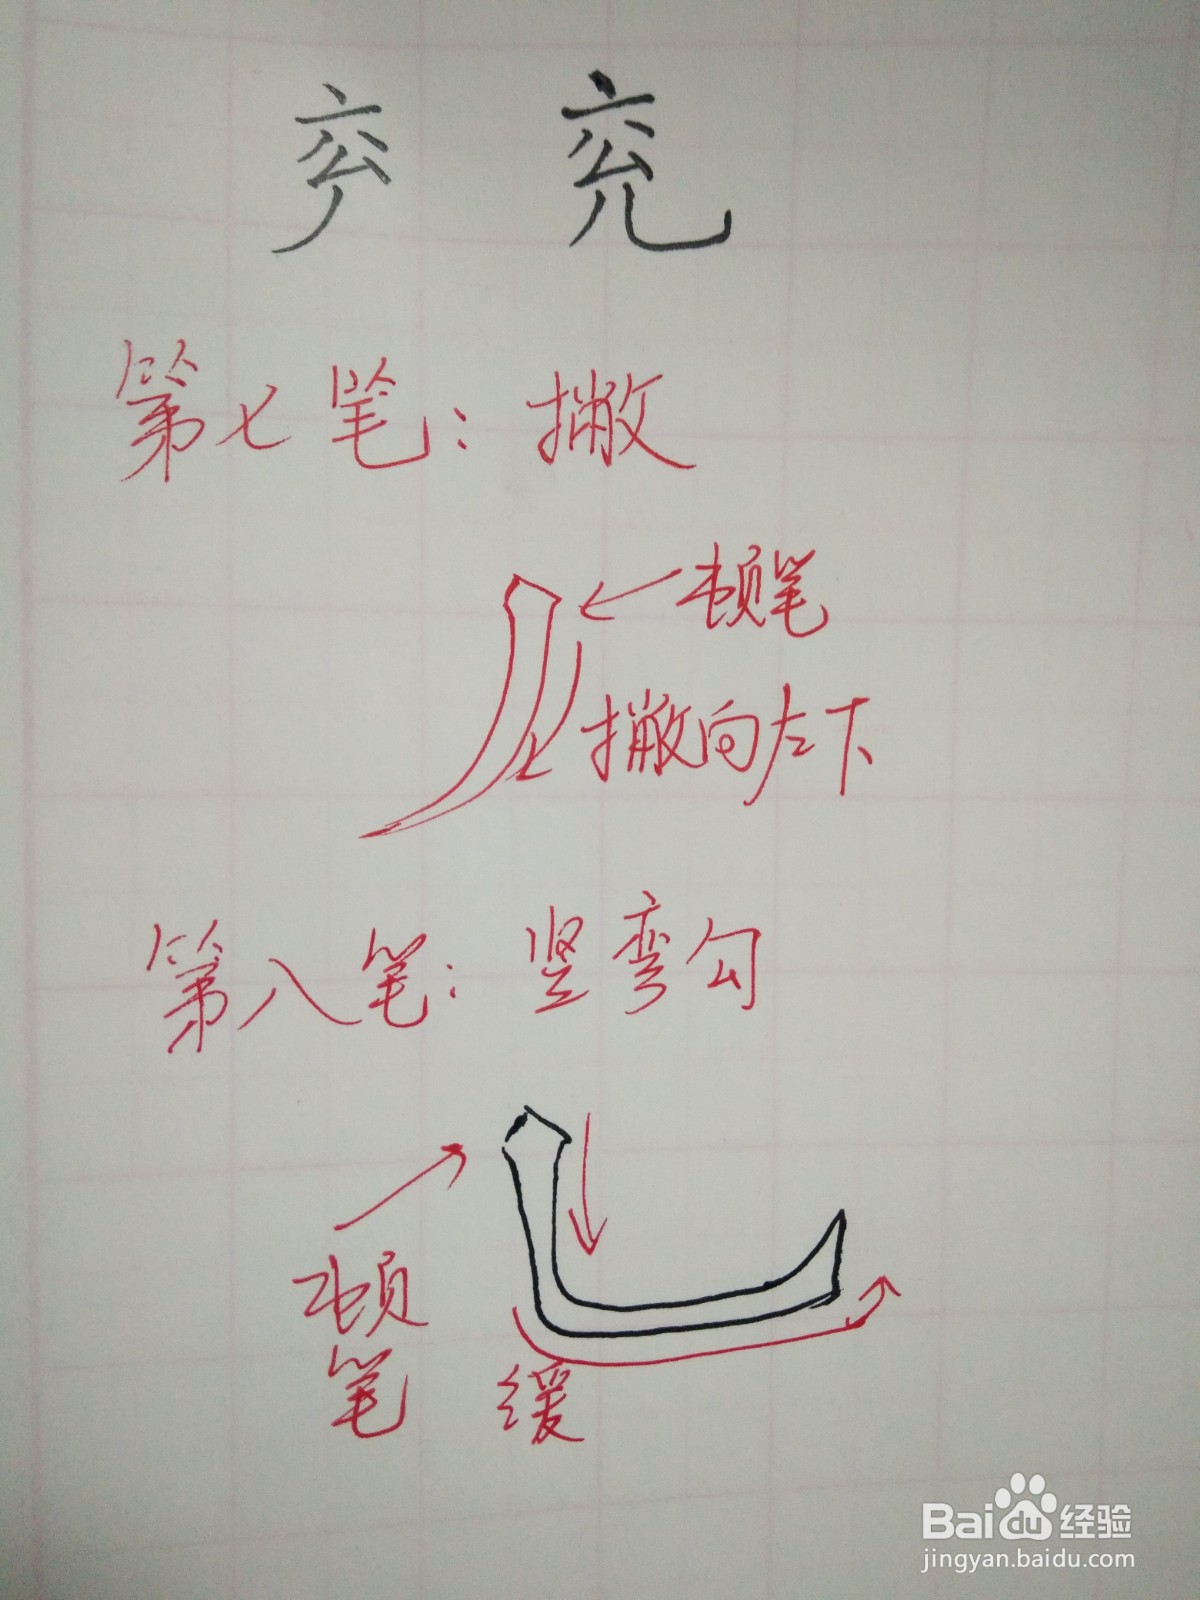 兖
第七笔：撇
顿笔
撇向左下
第八笔：竖弯勾
顿
笔
缓
Baidu经验
jingyan.baidu.com